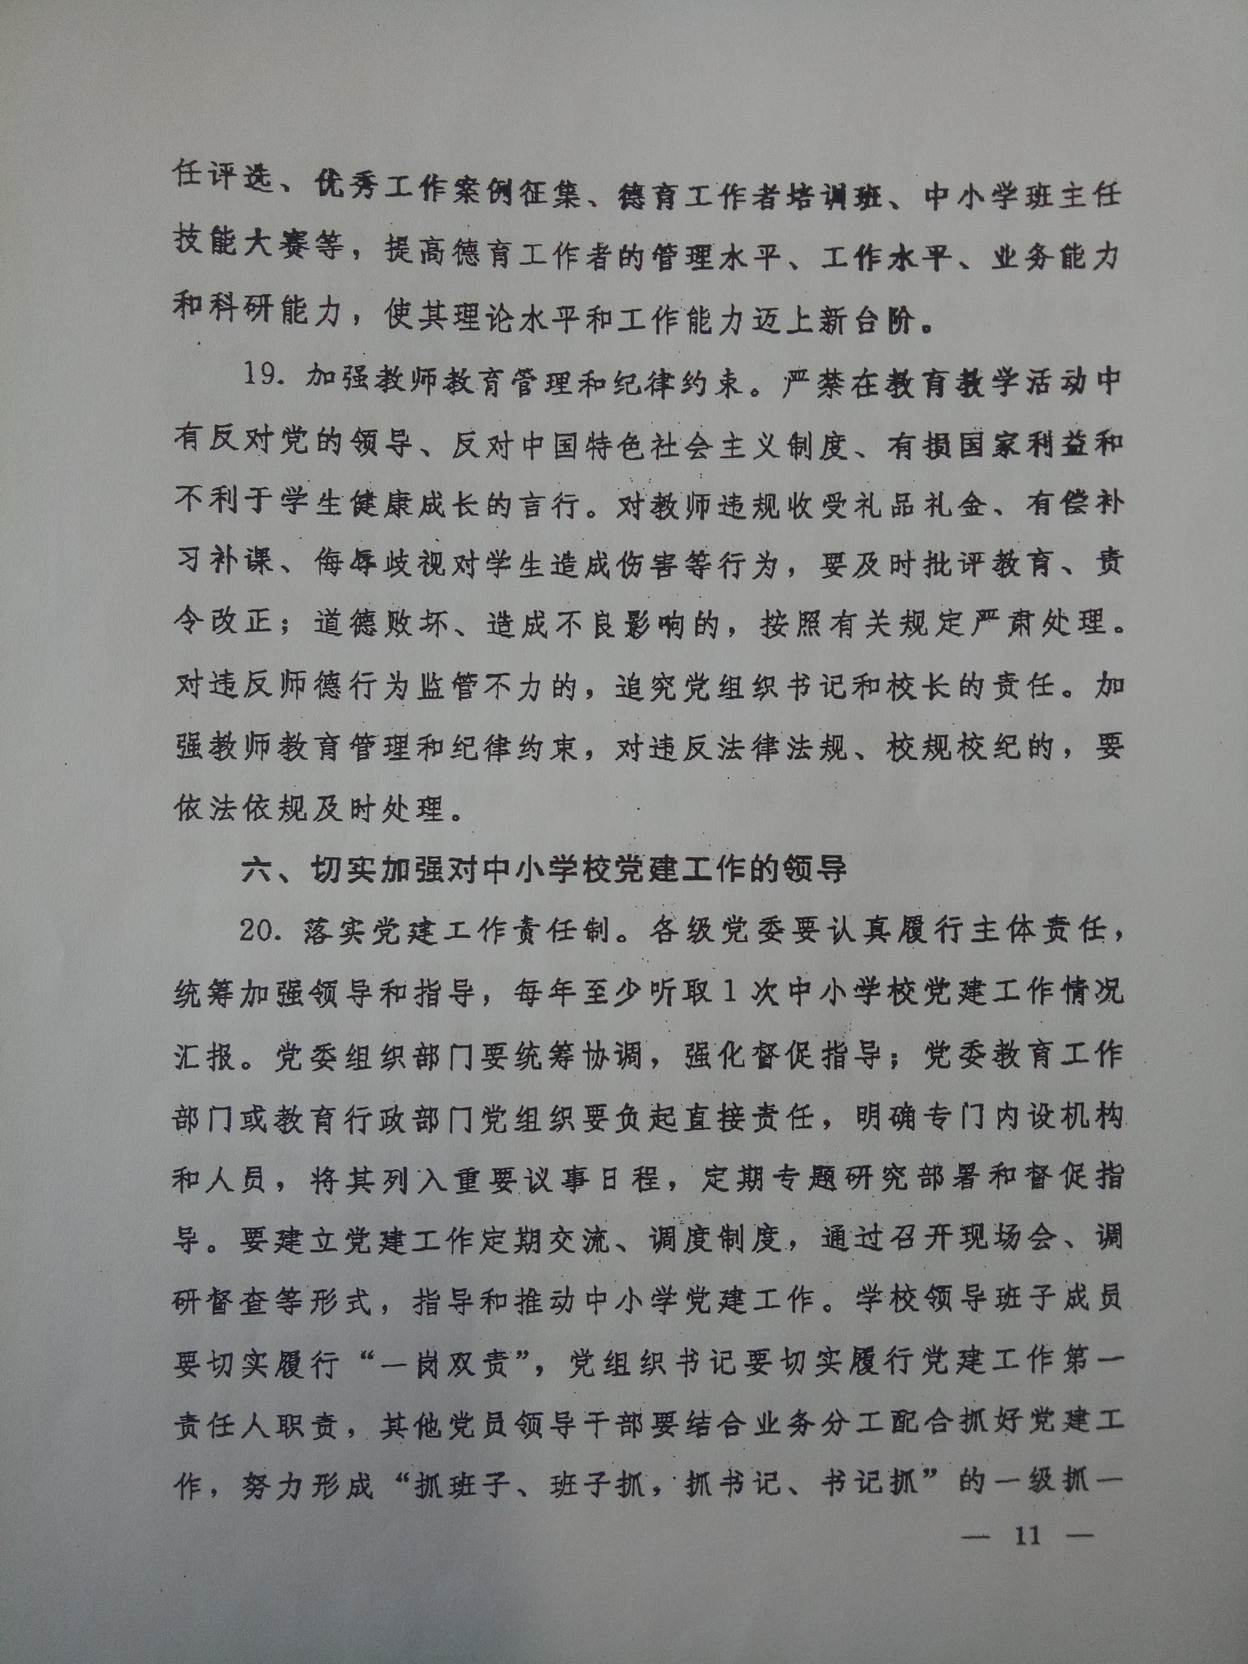 任评选、优秀工作案例征集、德育工作者培训班、中小学班主任
技能大赛等，提高德育工作者的管理水平、工作水平、业务能力
和科研能力，使其理论水平和工作能力迈上新台阶。
19. 加强教师教育管理和纪律约束。严禁在教育教学活动中
有反对党的领导、反对中国特色社会主义制度、有损国家利益和
不利于学生健康成长的言行。对教师违规收受礼品礼金、有偿补
习补课、侮辱歧视对学生造成伤害等行为，要及时批评教育、责
令改正；道德败坏、造成不良影响的，按照有关规定严肃处理。
对违反师德行为监管不力的，追究党组织书记和校长的责任。加
强教师教育管理和纪律约束，对违反法律法规、校规校纪的，要
依法依规及时处理。
六、切实加强对中小学校党建工作的领导
20. 落实党建工作责任制。各级党委要认真履行主体责任，
统筹加强领导和指导，每年至少听取1次中小学校党建工作情况
汇报。党委组织部门要统筹协调，强化督促指导；党委教育工作
部门或教育行政部门党组织要负起直接责任，明确专门内设机构
和人员，将其列入重要议事日程，定期专题研究部署和督促指
导。要建立党建工作定期交流、调度制度，通过召开现场会、调
研督查等形式，指导和推动中小学党建工作。学校领导班子成员
要切实履行“一岗双责”，党组织书记要切实履行党建工作第一
责任人职责，其他党员领导干部要结合业务分工配合抓好党建工
作，努力形成“抓班子、班子抓，抓书记、书记抓”的一级抓一
— 11 —